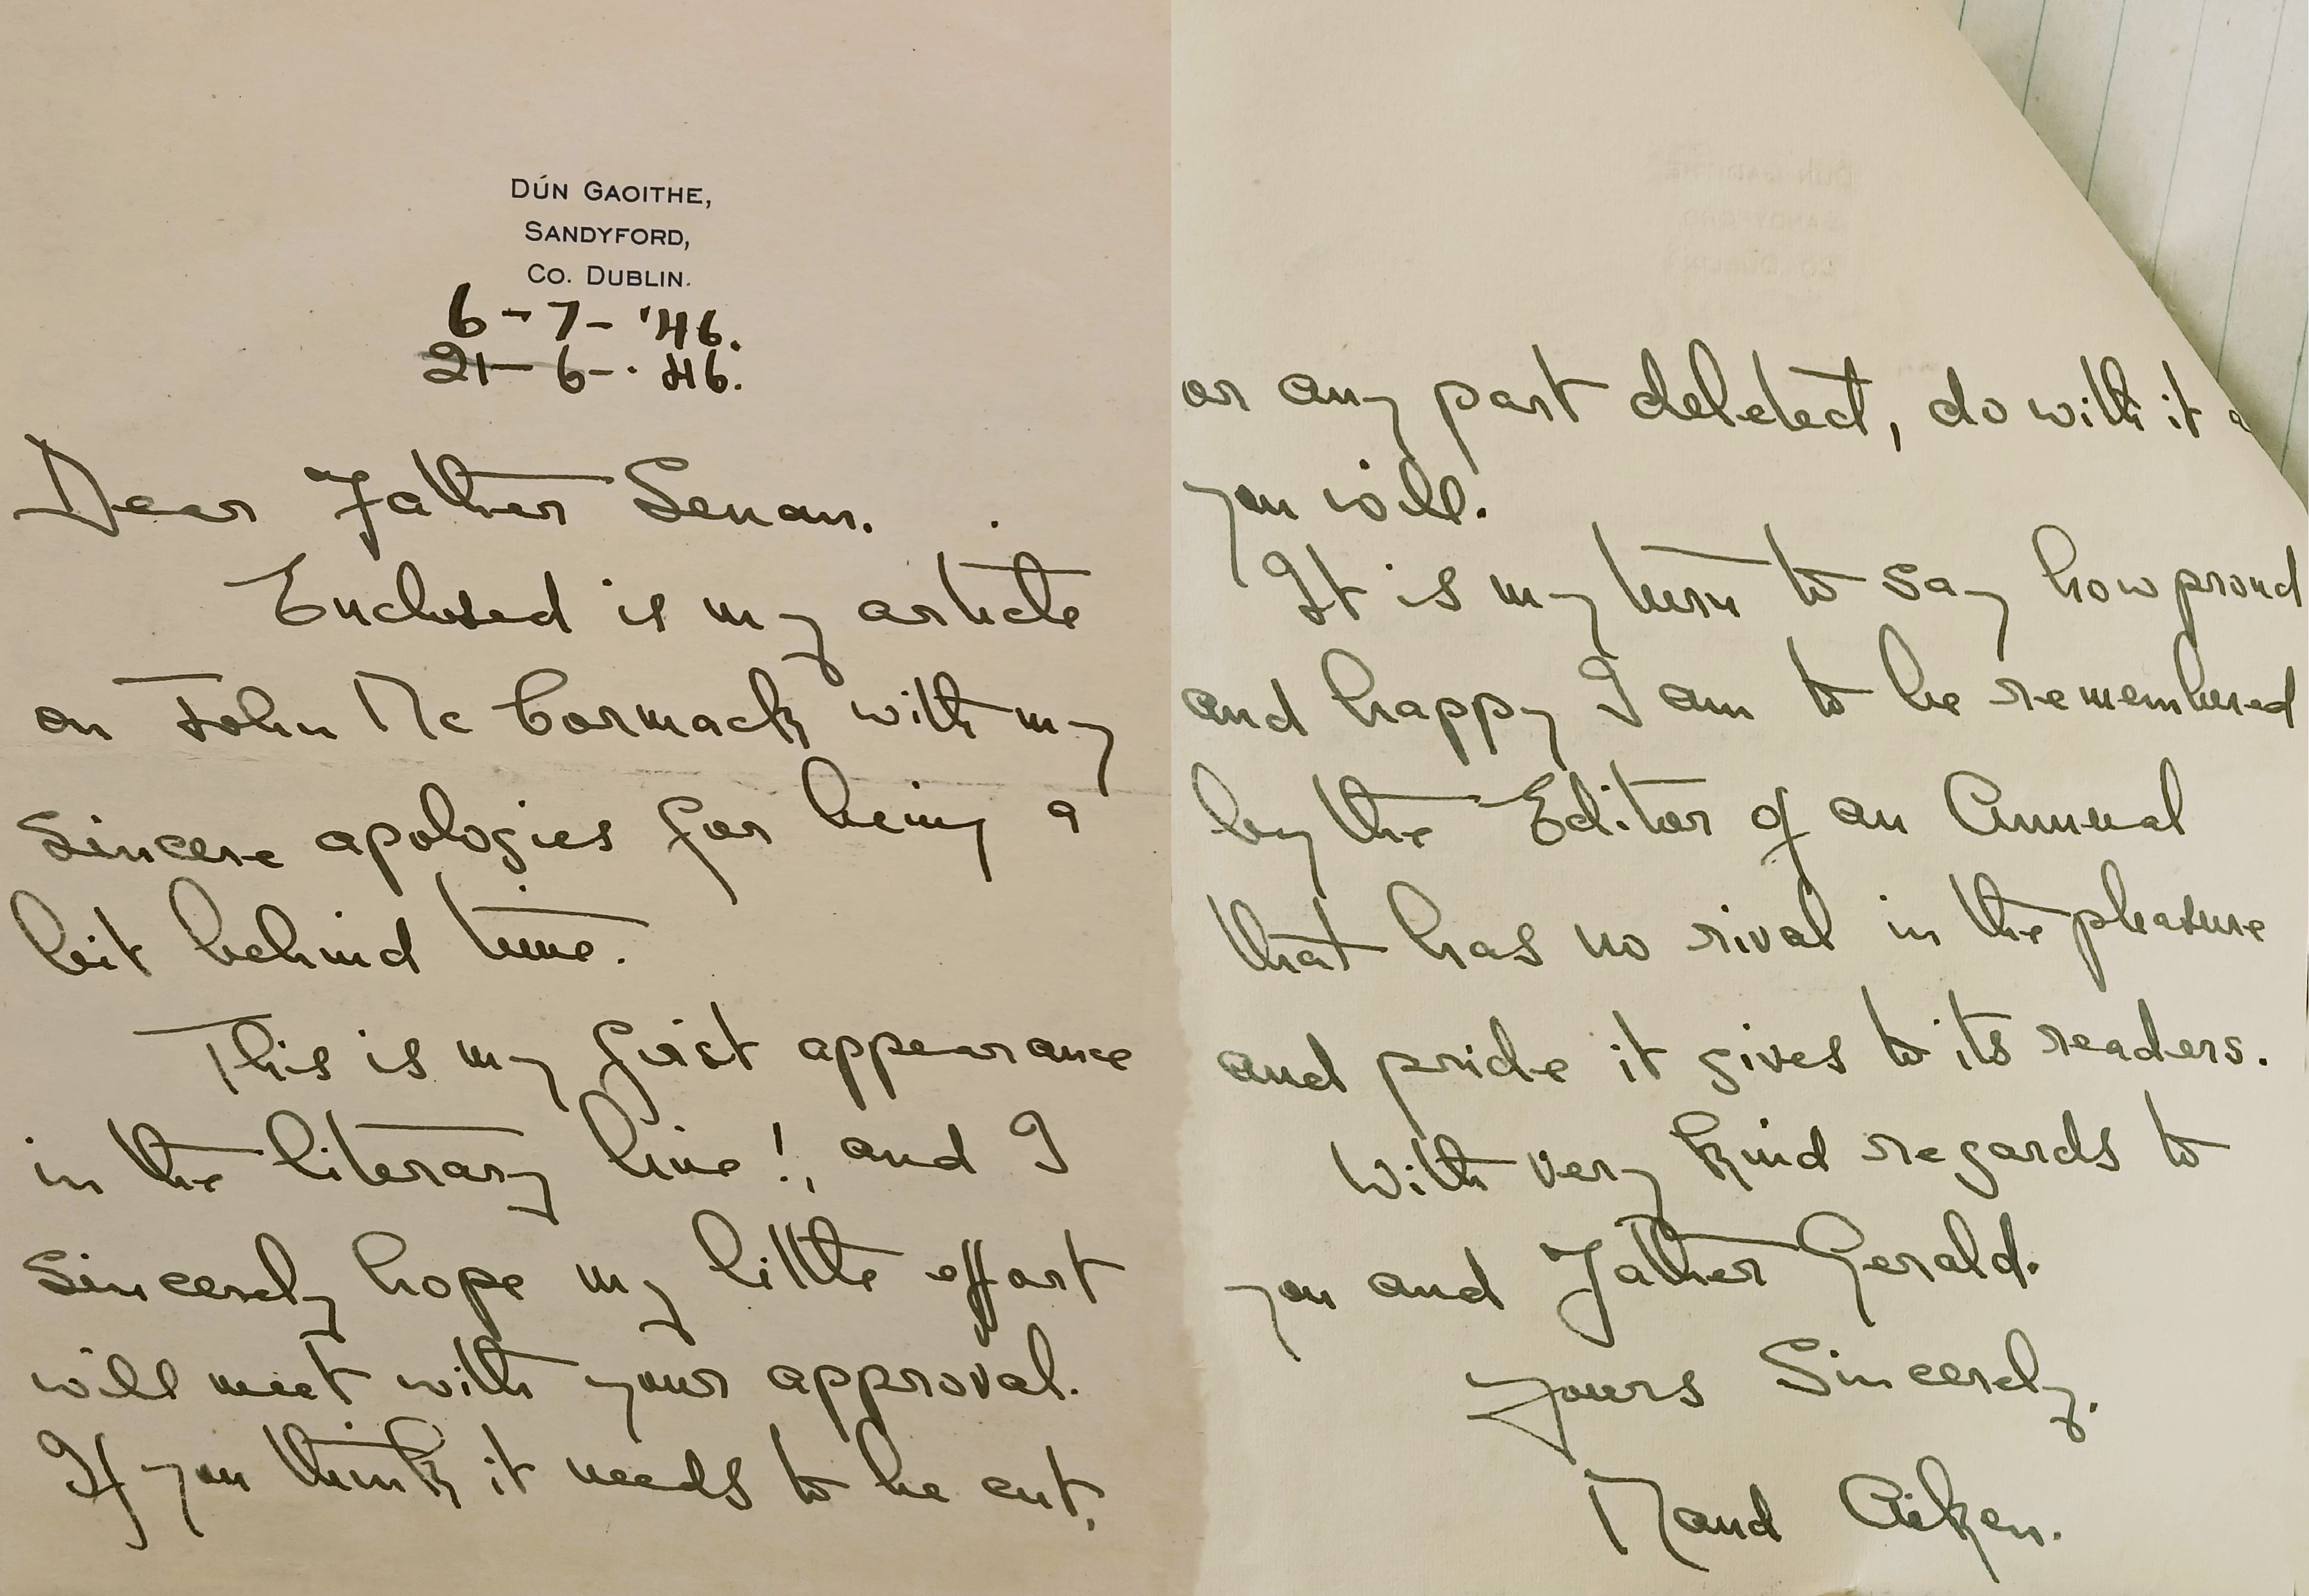 DÚN GAOITHE,
SANDYFORD,
CO. DUBLIN.
6-7-'46.
21-6-'46.
Dear Father Senan.
Enclosed is my article
on John Mc Cormack with my
sincere apologies for being a
bit behind time.
This is my first appearance
in the literary line!, and I
sincerely hope my little effort
will meet with your approval.
If you think it needs to be cut,
or any part deleted, do with it
you will.
It is my turn to say how proud
and happy I am to be remembered
by the Editor of an Annual
that has no rival in the pleasure
and pride it gives to its readers.
With very kind regards to
you and Father Gerald.
Yours Sincerely.
Maud Aiken.